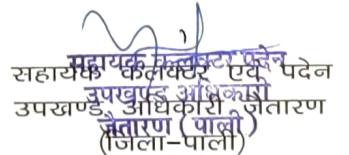 सहायक कलक्टर एवं पदेन
उपखण्ड अधिकारी जैतारण
(जिला-पाली)
सहायक कलक्टर पदेन
उपखण्ड अधिकारी
जैतारण (पाली)